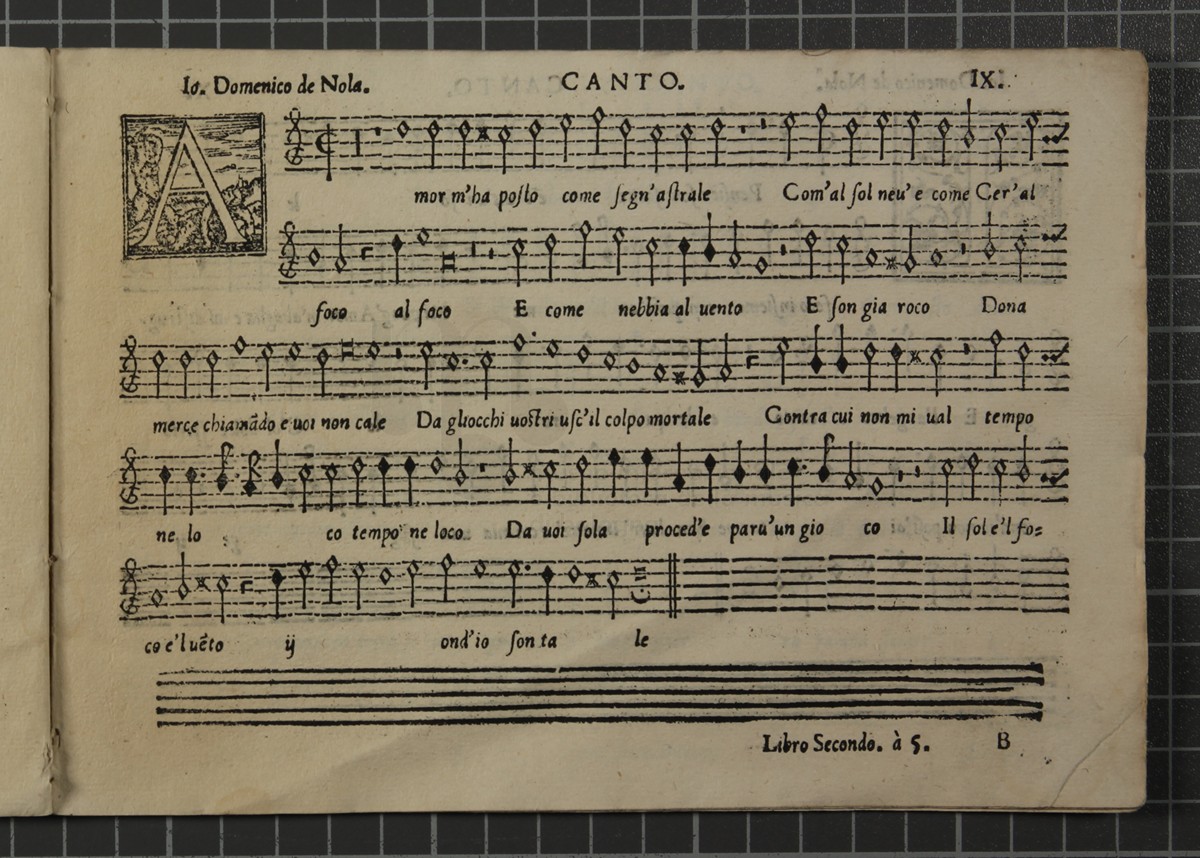 Io. Domenico de Nola. CANTO. IX.
A
mor m'ha poſto come ſegn'aſtrale Com'al ſol neu'e come Cer'al
foco al foco E come nebbia al uento E ſon gia roco Dona
merce chiamãdo e uoi non cale Da gliocchi uoſtri uſc'il colpo mortale Contra cui non mi ual tempo
ne lo co tempo ne loco Da uoi ſola proced'e paru'un gio co Il ſol e'l fo=
co e'l uẽto ij ond'io ſon ta le
Libro Secondo. à 5. B